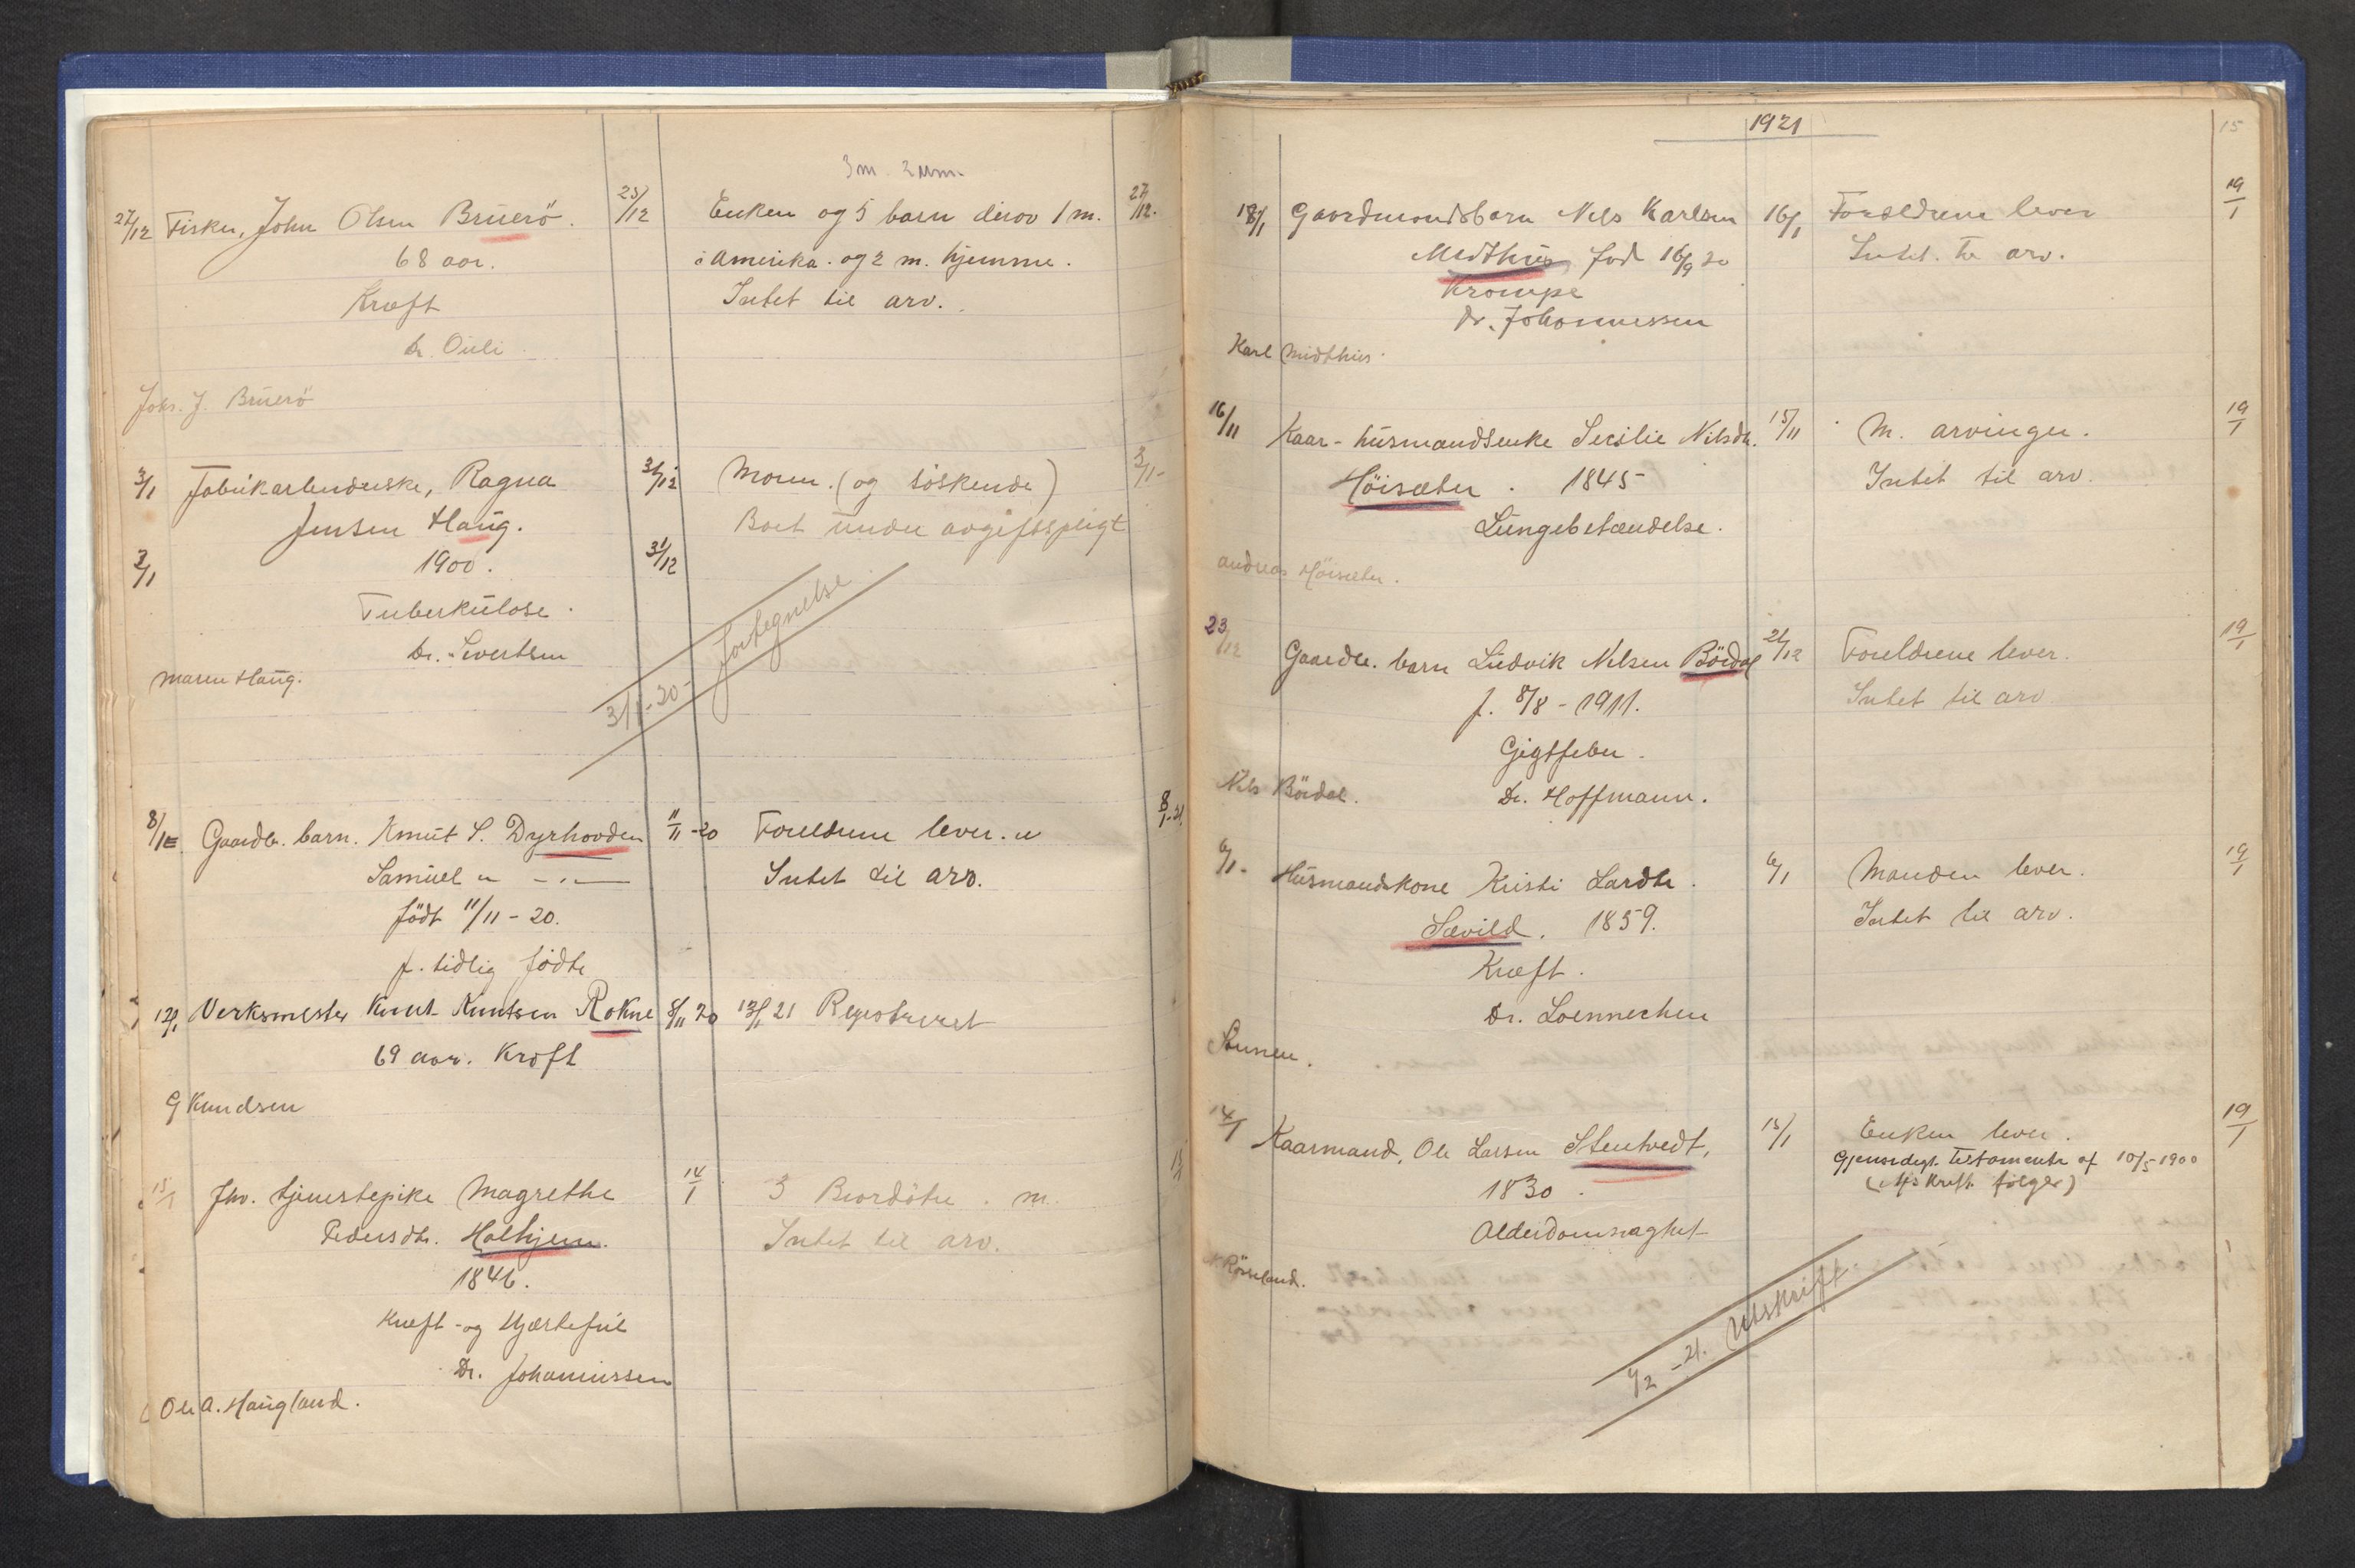 3 m. 2 um.
27/12 Fisker, John Olsen Bruerö. 23/12 Enken og 5 barn derav 1 m. 27/12.
68 aar. i Amerika. og 2 m. hjemme.
Kræft Intet til arv.
Dr. Ouli
Johs. J. Bruerö
3/1 Fabrikarbenderske, Ragna 31/12 Moren. (og söskende) 3/1-
Jensen Haug. Boet under avgiftspligt
3/1 1900. 31/12
Tuberkulose.
Dr. Sivertsen
Maren Haug.
3/1-20- fortegnelse
8/1 Gaardbr. barn. Knut S. Dyrhovden 11/11-20 Foreldrene lever. 8/1-21.
Samuel " - " - Intet til arv.
födt 11/11-20.
f. tidlig födte
12/1 Verksmester Knut Knutsen Rokne 8/11 20 12/1 21 Registreret
69 aar. Kræft
G Knudsen
15/1 Fhv. tjenestepike Magrethe 14/1 3 Brordötre. m. 15/1
Pedersdtr. Holhjem. Intet til arv.
1846.
Kræft- og Hjertefeil
Dr. Johannessen
Ole A. Haugland.
1921
15
18/1 Gaardmandsbarn Nils Karlsen 16/1 Forældrene lever 19/1
Midthus fød 16/9 20 Intet til arv.
Krampe
Dr. Johannessen
Karl Midthus.
16/11 Kaar-husmandsenke Sesilie Nilsdtr. 15/11 M. arvinger. 19/1
Höisæter. 1845 Intet til arv.
Lungebetændelse.
Andreas Höisæter.
23/12 Gaardbr. barn Ludvik Nilsen Bördal 21/12 Foreldrene lever. 19/1
f. 8/8-1911. Intet til arv
Gigtfeber.
Nils Bördal. Dr. Hoffmann.
6/1- Husmandskone Kristi Larsdtr. 6/1 Manden lever. 19/1
Sævild. 1859. Intet til arv.
Kræft.
Dr. Loennechen
14/1 Kaarmand, Ole Larsen Stentvedt, 13/1 Enken lever. 19/1
1830. Gjensidigt. Testamente af 10/5-1900
(Afskrift følger)
Alderdomsvaghet
N. Røsseland.
4/2-21. Utskrift.